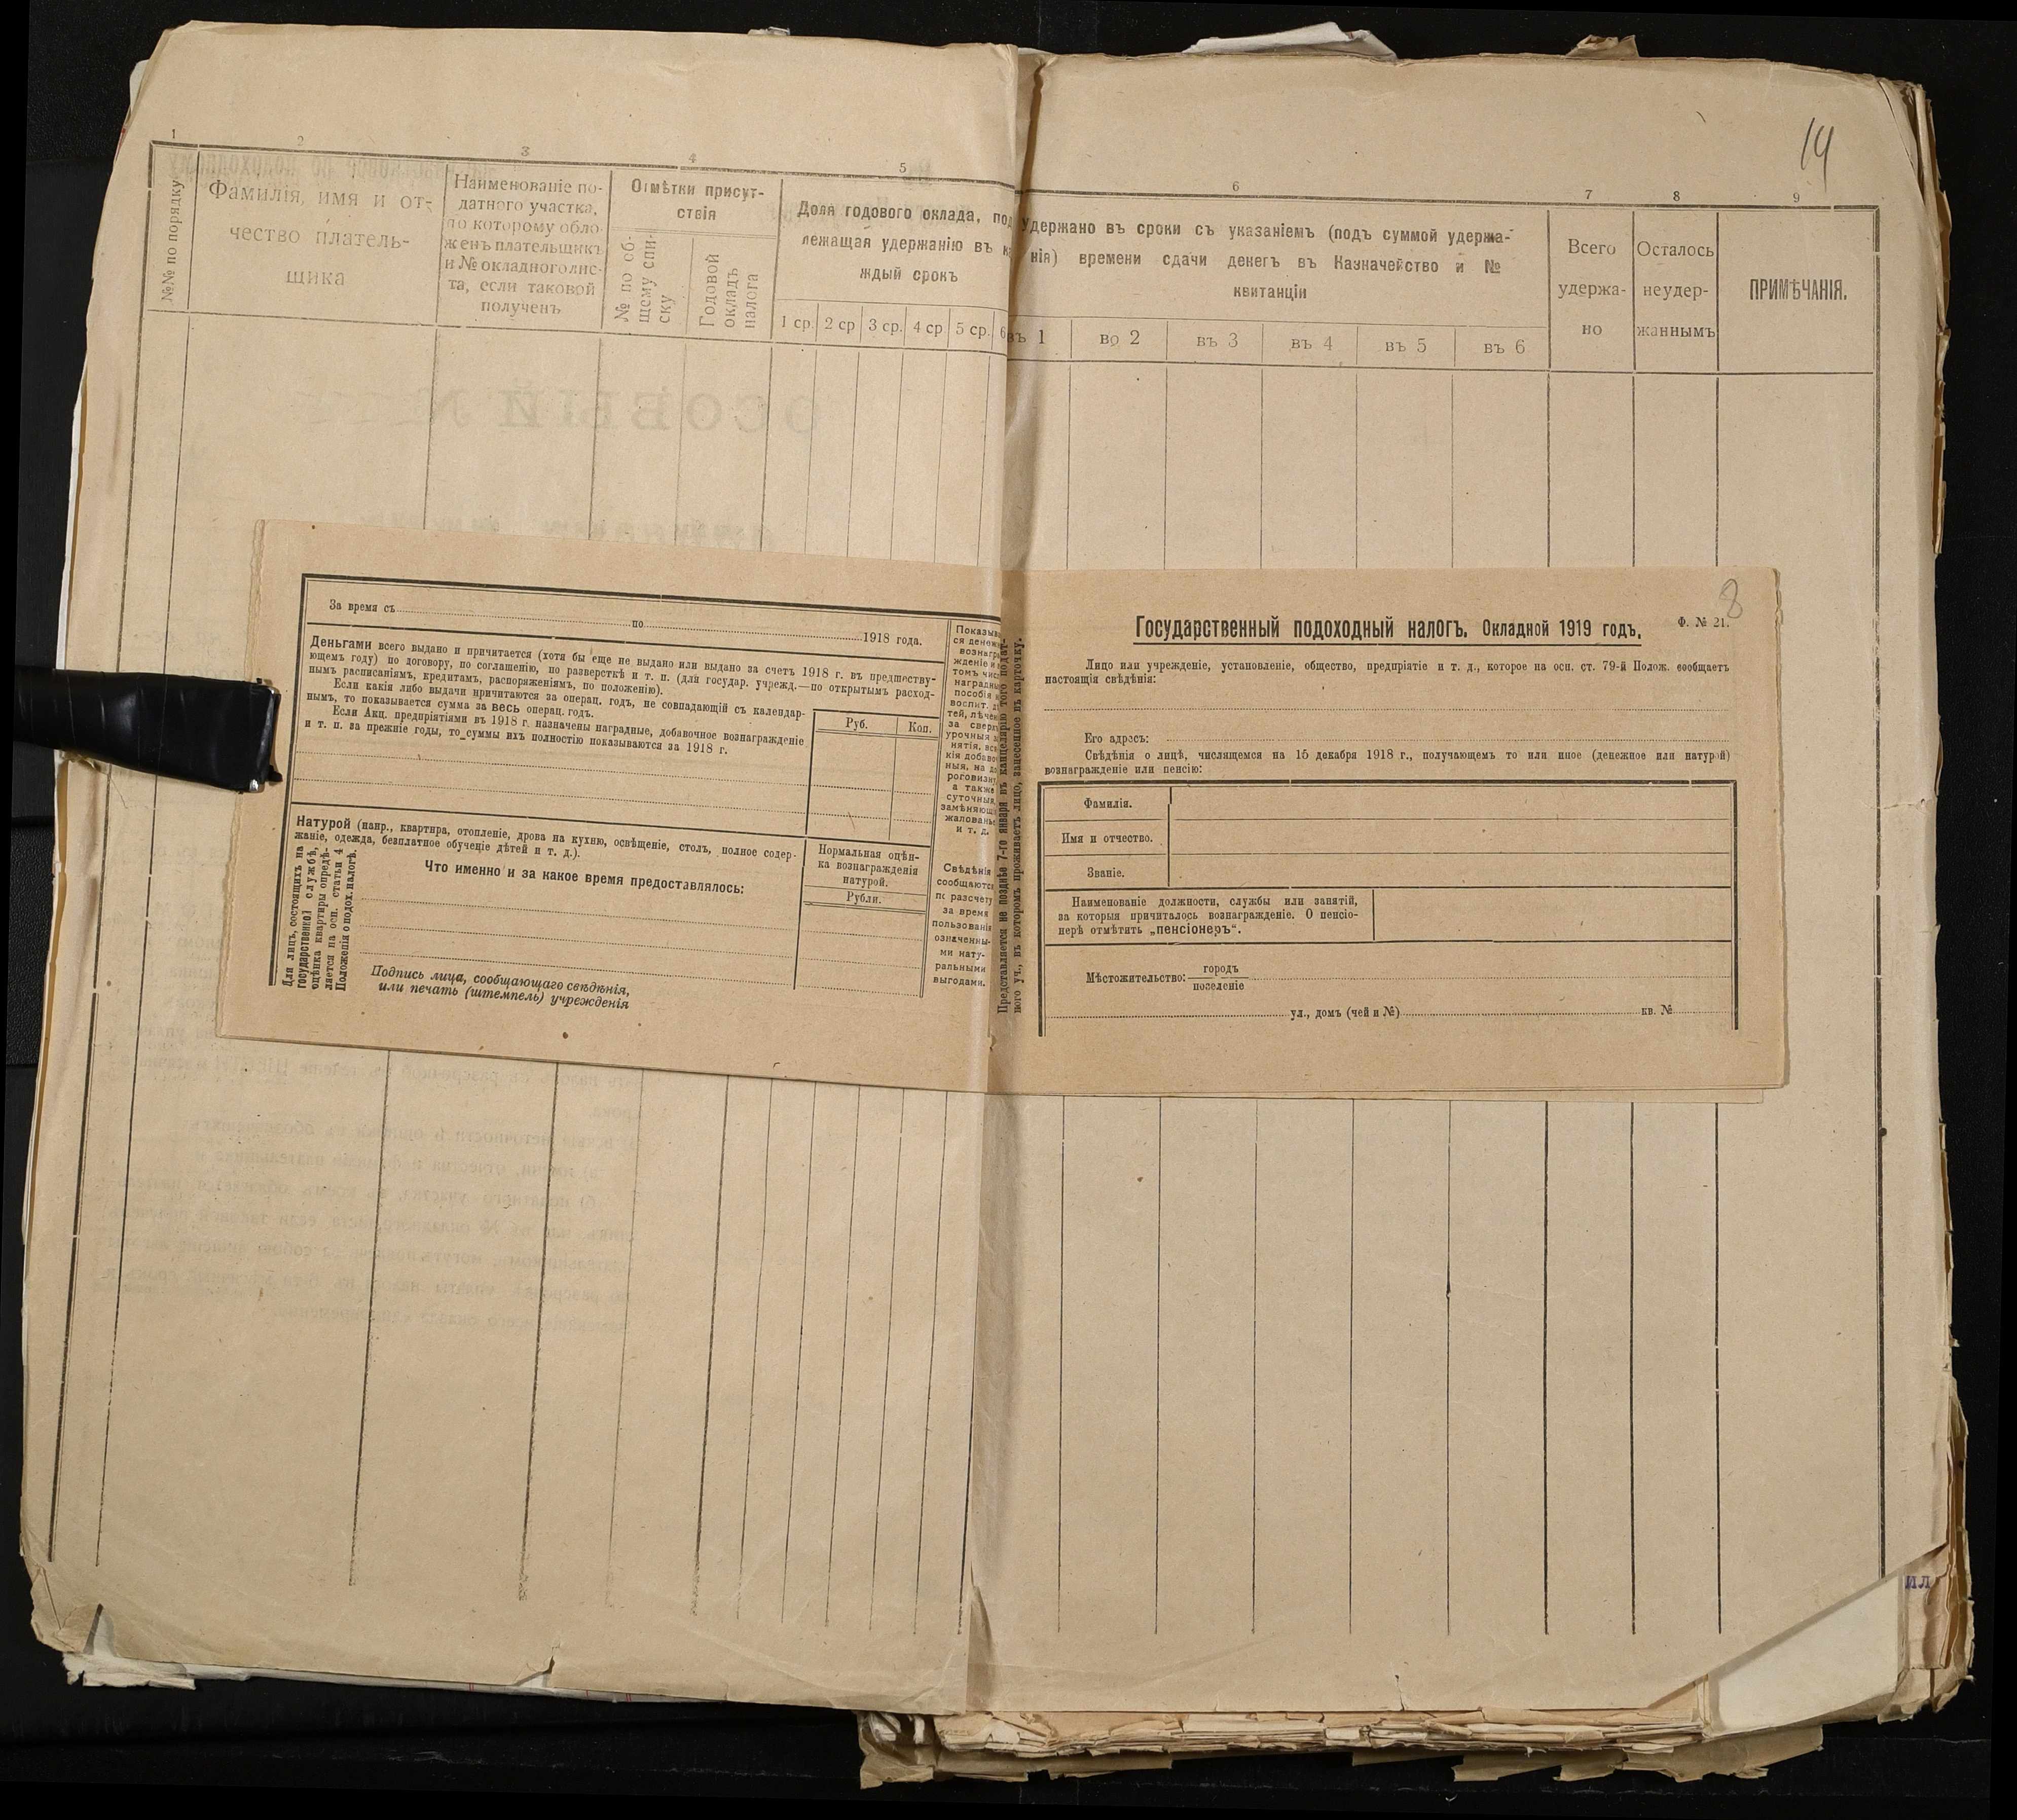 14
1 2 3 4 5
№№ по порядку
Фамилія, имя и от-
чество платель-
щика
Наименованіе по-
датного участка,
по которому обло-
женъ плательщикъ
и № окладного лис-
та, если таковой
полученъ
Отмѣтки присут-
ствія
№ по об-
щему спи-
ску
Годовой
окладъ
налога
Доля годового оклада, под
лежащая удержанію въ к
ждый срокъ
1 ср. 2 ср 3 ср. 4 ср 5 ср. 6
6 7 8 9
Удержано въ сроки съ указаніемъ (подъ суммой удержа-
нія) времени сдачи денегъ въ Казначейство и №
квитанціи
въ 1 во 2 въ 3 въ 4 въ 5 въ 6
Всего
удержа-
но
Осталось
неудер-
жаннымъ
ПРИМѢЧАНІЯ.
За время съ по 1918 года.
Деньгами всего выдано и причитается (хотя бы еще не выдано или выдано за счетъ 1918 г. въ предшеству-
ющемъ году) по договору, по соглашенію, по разверсткѣ и т. п. (для государ. учрежд.—по открытымъ расход-
нымъ расписаніямъ, кредитамъ, распоряженіямъ, по положенію).
Если какія либо выдачи причитаются за операц. годъ, не совпадающій съ календар-
нымъ, то показывается сумма за весь операц. годъ.
Если Акц. предпріятіями въ 1918 г. назначены наградные, добавочное вознагражденіе
и т. п. за прежніе годы, то суммы ихъ полностію показываются за 1918 г.
Руб. Коп.
Показыв
ся денеж
вознагр
жденіе и
томъ чис
наградны
пособія н
воспит. д
тей, лѣчен
за сверх
урочныя з
нятія, вся
кія добавоч
ныя, на до
роговизну
а также
суточныя,
замѣняющ
жалованье
и т. д.
Натурой (напр., квартира, отопленіе, дрова на кухню, освѣщеніе, столъ, полное содер-
жаніе, одежда, безплатное обученіе дѣтей и т. д.).
Что именно и за какое время предоставлялось:
Нормальная оцѣн-
ка вознагражденія
натурой.
Рубли.
Для лицъ, состоящихъ на
государственной службѣ,
оцѣнка квартиры опредѣ-
ляется на осн. статьи 4
Положенія о подох. налогѣ.
Свѣдѣнія
сообщаются
по разсчету
за время
пользованія
означенны-
ми нату-
ральными
выгодами.
Подпись лица, сообщающаго свѣдѣнія,
или печать (штемпель) учрежденія
Представляется не позднѣе 7-го января въ канцелярію того подат-
ного уч., въ которомъ проживаетъ лицо, занесенное въ карточку.
8
Государственный подоходный налогъ. Окладной 1919 годъ.
Ф. № 21.
Лицо или учрежденіе, установленіе, общество, предпріятіе и т. д., которое на осн. ст. 79-й Полож. сообщаетъ
настоящія свѣдѣнія:
Его адресъ:
Свѣдѣнія о лицѣ, числящемся на 15 декабря 1918 г., получающемъ то или иное (денежное или натурой)
вознагражденіе или пенсію:
Фамилія.
Имя и отчество.
Званіе.
Наименованіе должности, службы или занятій,
за которыя причиталось вознагражденіе. О пенсіо-
нерѣ отмѣтить „пенсіонеръ“.
Мѣстожительство: городъ
поселеніе
ул., домъ (чей и №) кв. №
ил